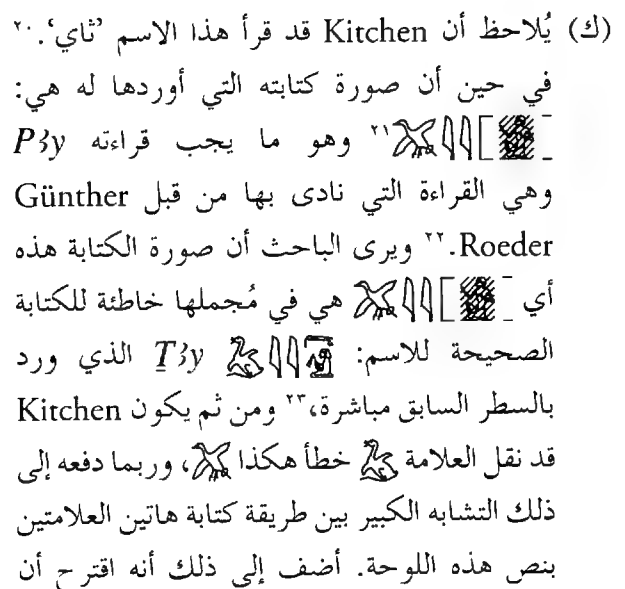 (ك) يُلاحظ أن Kitchen قد قرأ هذا الاسم ’ثاي‘.٢٠
في حين أن صورة كتابته التي أوردها له هي:
٢١ وهو ما يجب قراءته P3y
وهي القراءة التي نادى بها من قبل Günther
Roeder.٢٢ ويرى الباحث أن صورة الكتابة هذه
أي هي في مُجملها خاطئة للكتابة
الصحيحة للاسم: Ṯ3y الذي ورد
بالسطر السابق مباشرة،٢٣ ومن ثم يكون Kitchen
قد نقل العلامة خطأ هكذا ، وربما دفعه إلى
ذلك التشابه الكبير بين طريقة كتابة هاتين العلامتين
بنص هذه اللوحة. أضف إلى ذلك أنه اقترح أن